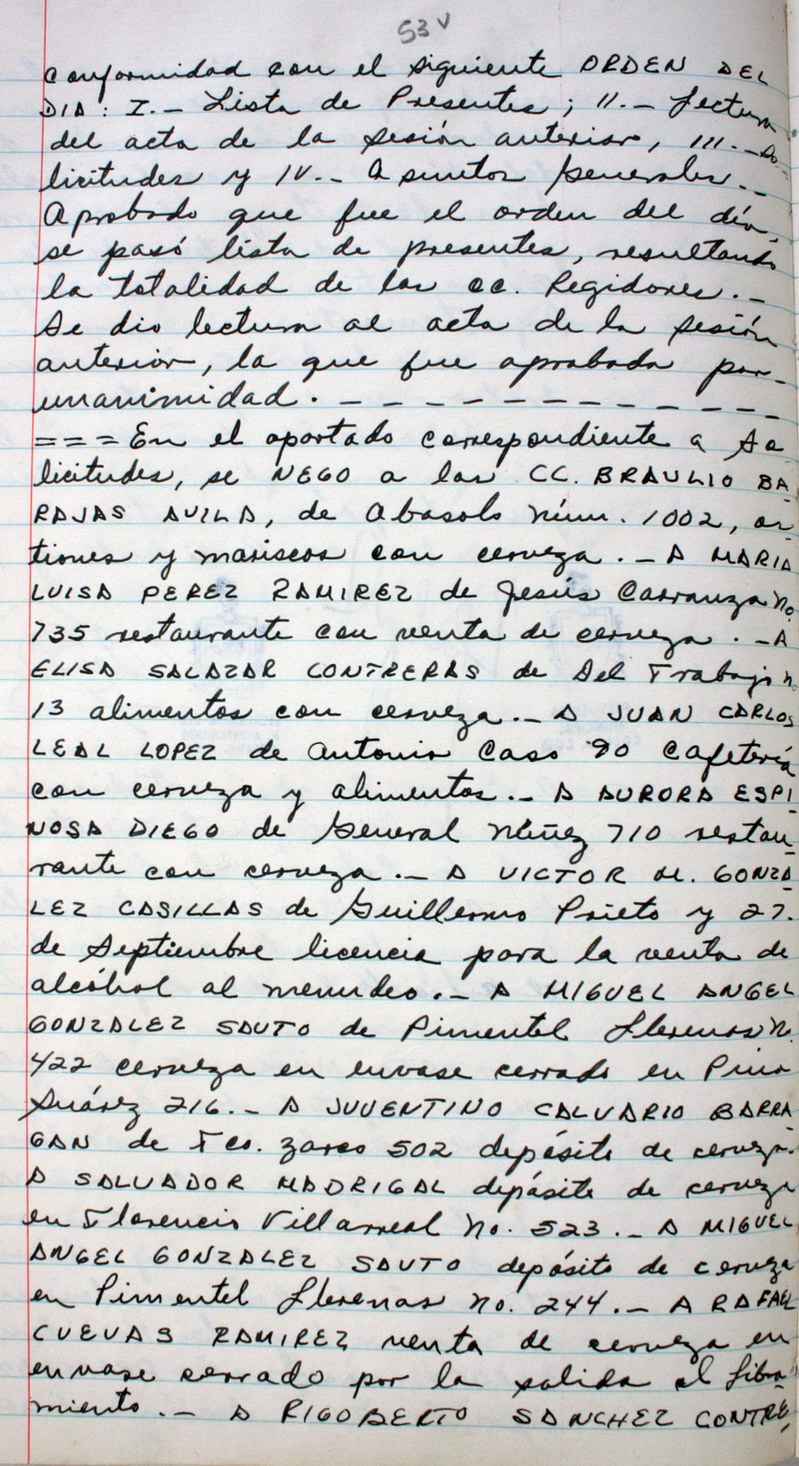 53 v
conformidad con el siguiente ORDEN DEL
DIA: I.- Lista de Presentes; II.- Lectura
del acta de la sesión anterior, III.- So-
licitudes y IV.- Asuntos Generales.-
Aprobado que fue el orden del día,
se pasó lista de presentes, resultando
la totalidad de los CC. Regidores.-
Se dio lectura al acta de la sesión
anterior, la que fue aprobada por-
unanimidad. - - - - - - - - - - - -
=== En el apartado correspondiente a So
licitudes, se NEGO a los CC. BRAULIO BA
RAJAS AVILA, de Abasolo núm. 1002, os
tiones y mariscos con cerveza.- A MARIA
LUISA PEREZ RAMIREZ de Jesús Carranza No.
735 restaurante con venta de cerveza.- A
ELISA SALAZAR CONTRERAS de Del Trabajo No.
13 alimentos con cerveza.- A JUAN CARLOS
LEAL LOPEZ de Antonio Caso 90 Cafetería
con cerveza y alimentos.- A AURORA ESPI
NOSA DIEGO de General Núñez 710 restau
rante con cerveza.- A VICTOR M. GONZA
LEZ CASILLAS de Guillermo Prieto y 27-
de Septiembre licencia para la venta de
alcohol al menudeo.- A MIGUEL ANGEL
GONZALEZ SAUTO de Pimentel Llerenas No.
422 cerveza en envase cerrado en Pino
Suárez 216.- A JUVENTINO CALVARIO BARRA
GAN de Fco. Zarco 502 depósito de cerveza.
A SALVADOR MADRIGAL depósito de cerveza
en Florencio Villarreal No. 523.- A MIGUEL
ANGEL GONZALEZ SAUTO depósito de cerveza
en Pimentel Llerenas No. 244.- A RAFAEL
CUEVAS RAMIREZ venta de cerveza en
envase cerrado por la salida al Libra
miento.- A RIGOBERTO SANCHEZ CONTRE,